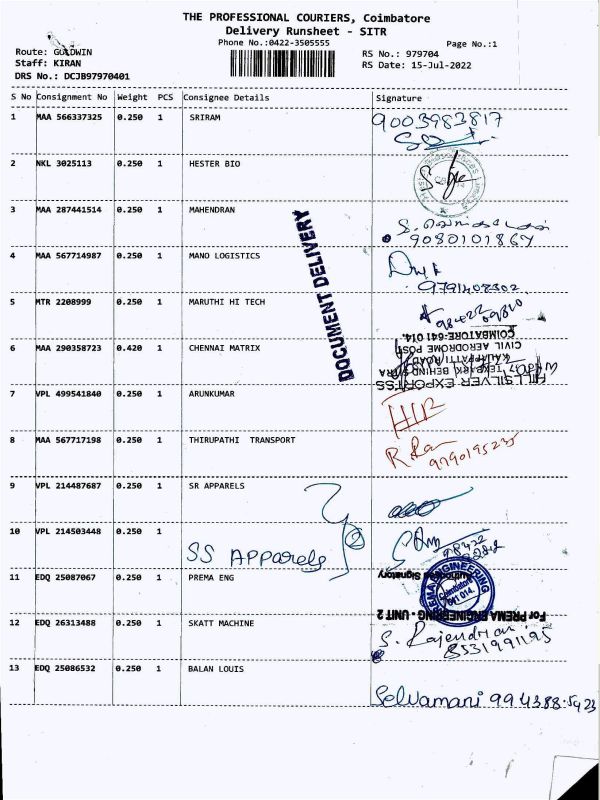 THE PROFESSIONAL COURIERS, Coimbatore
Delivery Runsheet - SITR
Phone No.:0422-3505555
Page No.:1
Route: GOLDWIN
RS No.: 979704
Staff: KIRAN
RS Date: 15-Jul-2022
DRS No.: DCJB97970401
S No Consignment No Weight PCS Consignee Details Signature
1 MAA 566337325 0.250 1 SRIRAM 9003983817
2 NKL 3025113 0.250 1 HESTER BIO
3 MAA 287441514 0.250 1 MAHENDRAN
9080101867
4 MAA 567714987 0.250 1 MANO LOGISTICS
9791408302
DOCUMENT DELIVERY
5 MTR 2208999 0.250 1 MARUTHI HI TECH
6 MAA 290358723 0.420 1 CHENNAI MATRIX
HILLSILVER EXPORTSS
CIVIL AERODROME POST
COIMBATORE-641 014.
7 VPL 499541840 0.250 1 ARUNKUMAR
8 MAA 567717198 0.250 1 THIRUPATHI TRANSPORT
9790195235
9 VPL 214487687 0.250 1 SR APPARELS
10 VPL 214503448 0.250 1
SS APPARELS
2
11 EDQ 25087067 0.250 1 PREMA ENG
Authorised Signatory
PREMA ENGINEERING
Coimbatore
641 014.
For PREMA ENGINEERING - UNIT 2
12 EDQ 26313488 0.250 1 SKATT MACHINE
S. Rajendran
8531991195
13 EDQ 25086532 0.250 1 BALAN LOUIS
Selvamani 994388.5923